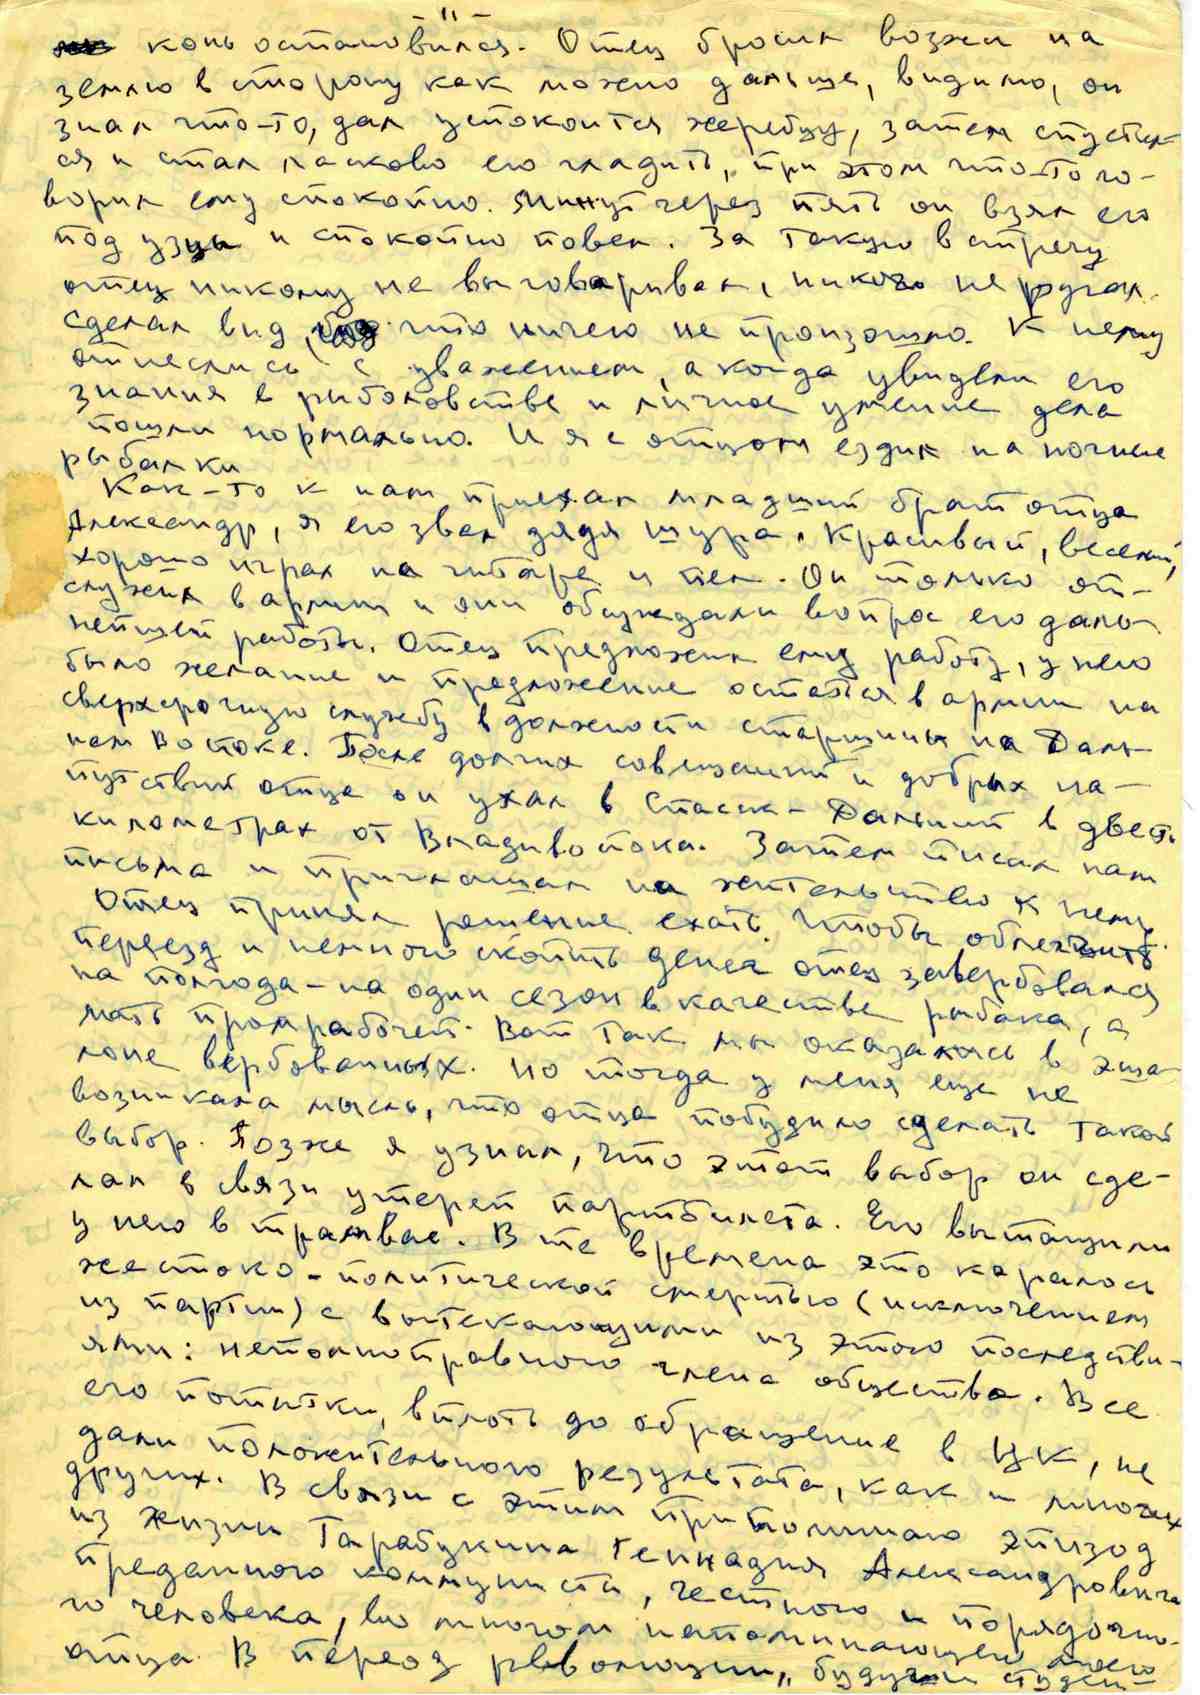 - 11 -
конь остановился. Отец бросил возжи на
землю в сторону как можно дальше, видимо, он
знал что-то, дал успокоится жеребцу, затем спустил-
ся и стал ласково его гладить, при этом что-то го-
ворил ему спокойно. Минут через пять он взял его
под узцы и спокойно повел. За такую встречу
отец никому не выговаривал, никого не ругал.
Сделал вид, что ничего не произошло. К нему
отнеслись с уважением, а когда увидели его
знания в рыболовстве и личное умение дела
пошли нормально. И я с отцом ездил на ночные
рыбалки
Как-то к нам приехал младший брат отца
Александр, я его звал дядя Шура. Красивый, веселый,
хорошо играл на гитаре и пел. Он только от-
служил в армии и они обсуждали вопрос его даль-
нейшей работы. Отец предложил ему работу, у него
было желание и предложение остаться в армии на
сверхсрочную службу в должности старшины на Даль-
нем Востоке. После долгих совещаний и добрых на-
путствий отца он ухал в Спасск-Дальний в двести
километрах от Владивостока. Затем писал нам
письма и приглашал на жительство к нему.
Отец принял решение ехать. Чтобы облегчить
переезд и немного скопить денег отец завербовался
на полгода - на один сезон в качестве рыбака, а
мать промрабочей. Вот так мы оказались в эша-
лоне вербованных. Но тогда у меня еще не
возникала мысль, что отца побудило сделать такой
выбор. Позже я узнал, что этот выбор он сде-
лал в связи утерей партбилета. Его вытащили
у него в трамвае. В те времена это каралось
жестоко - политической смертью (исключением
из партии) с вытекающими из этого последстви-
ями: неполноправного члена общества. Все
его попытки, вплоть до обращение в ЦК, не
дали положительного результата, как и многих
других. В связи с этим припоминаю эпизод
из жизни Тарабукина Геннадия Александровича
преданного коммуниста, честного и порядочно-
го человека, во многом напоминающего моего
отца. В период революции, будучи студен-